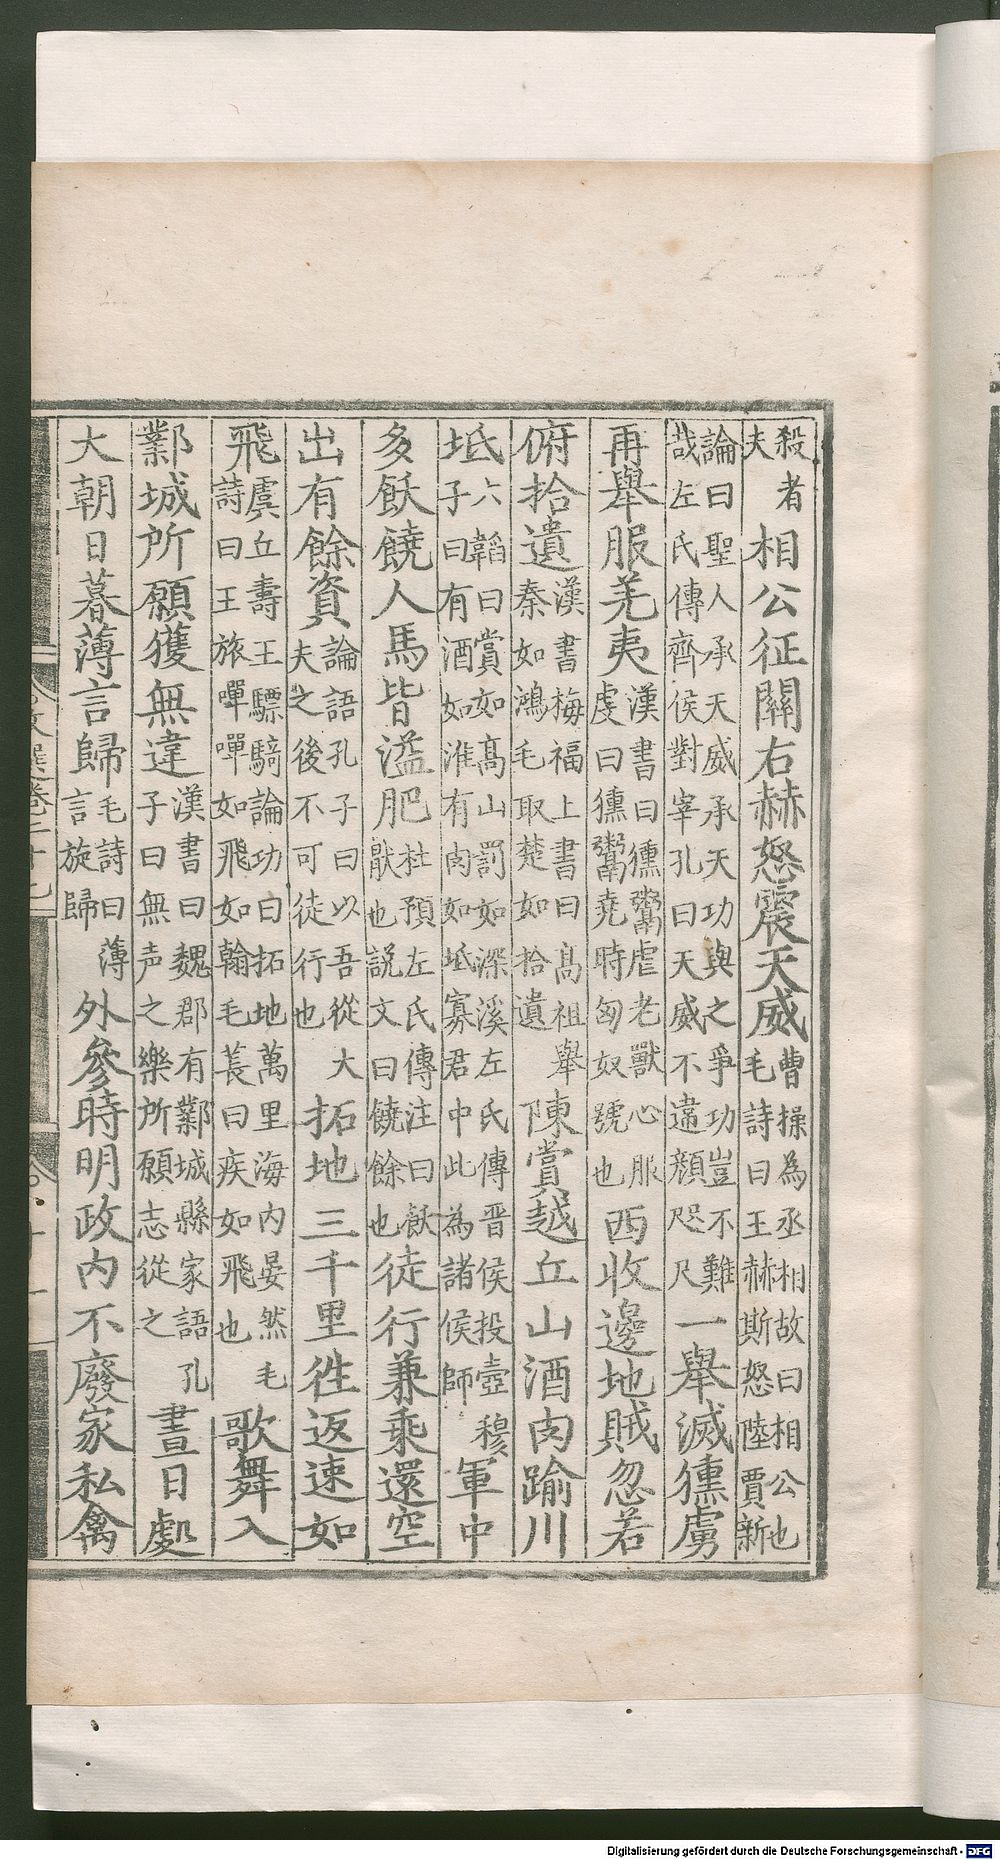 殺者夫相公征關右赫怒震天威曹操為丞相故曰相公也毛詩曰王赫斯怒陸賈新
論曰聖人承天威承天功與之爭功豈不難哉左氏傳齊侯對宰孔曰天威不違顔咫尺一舉滅獯虜
再舉服羌夷漢書曰獯鬻虐老獸心服虔曰獯鬻堯時匈奴號也西收邊地賊忽若
俯拾遺漢書梅福上書曰髙祖舉秦如鴻毛取楚如拾遺陳賞越丘山酒肉踰川
坻六韜曰賞如髙山罰如深溪左氏傳晋侯投壺穆子曰有酒如淮有肉如坻寡君中此為諸侯師軍中
多飫饒人馬皆溢肥杜預左氏傳注曰飫猒也説文曰饒餘也徒行兼乘還空
出有餘資論語孔子曰以吾從大夫之後不可徒行也拓地三千里徃返速如
飛虞丘壽王驃騎論功曰拓地萬里海内晏然毛詩曰王旅嘽嘽如飛如翰毛萇曰疾如飛也歌舞入
鄴城所願獲無違漢書曰魏郡有鄴城縣家語孔子曰無声之樂所願志從之晝日處
大朝日暮薄言歸毛詩曰薄言旋歸外參時明政内不廢家私禽
文選卷二十七
十一
Digitalisierung gefördert durch die Deutsche Forschungsgemeinschaft - DFG